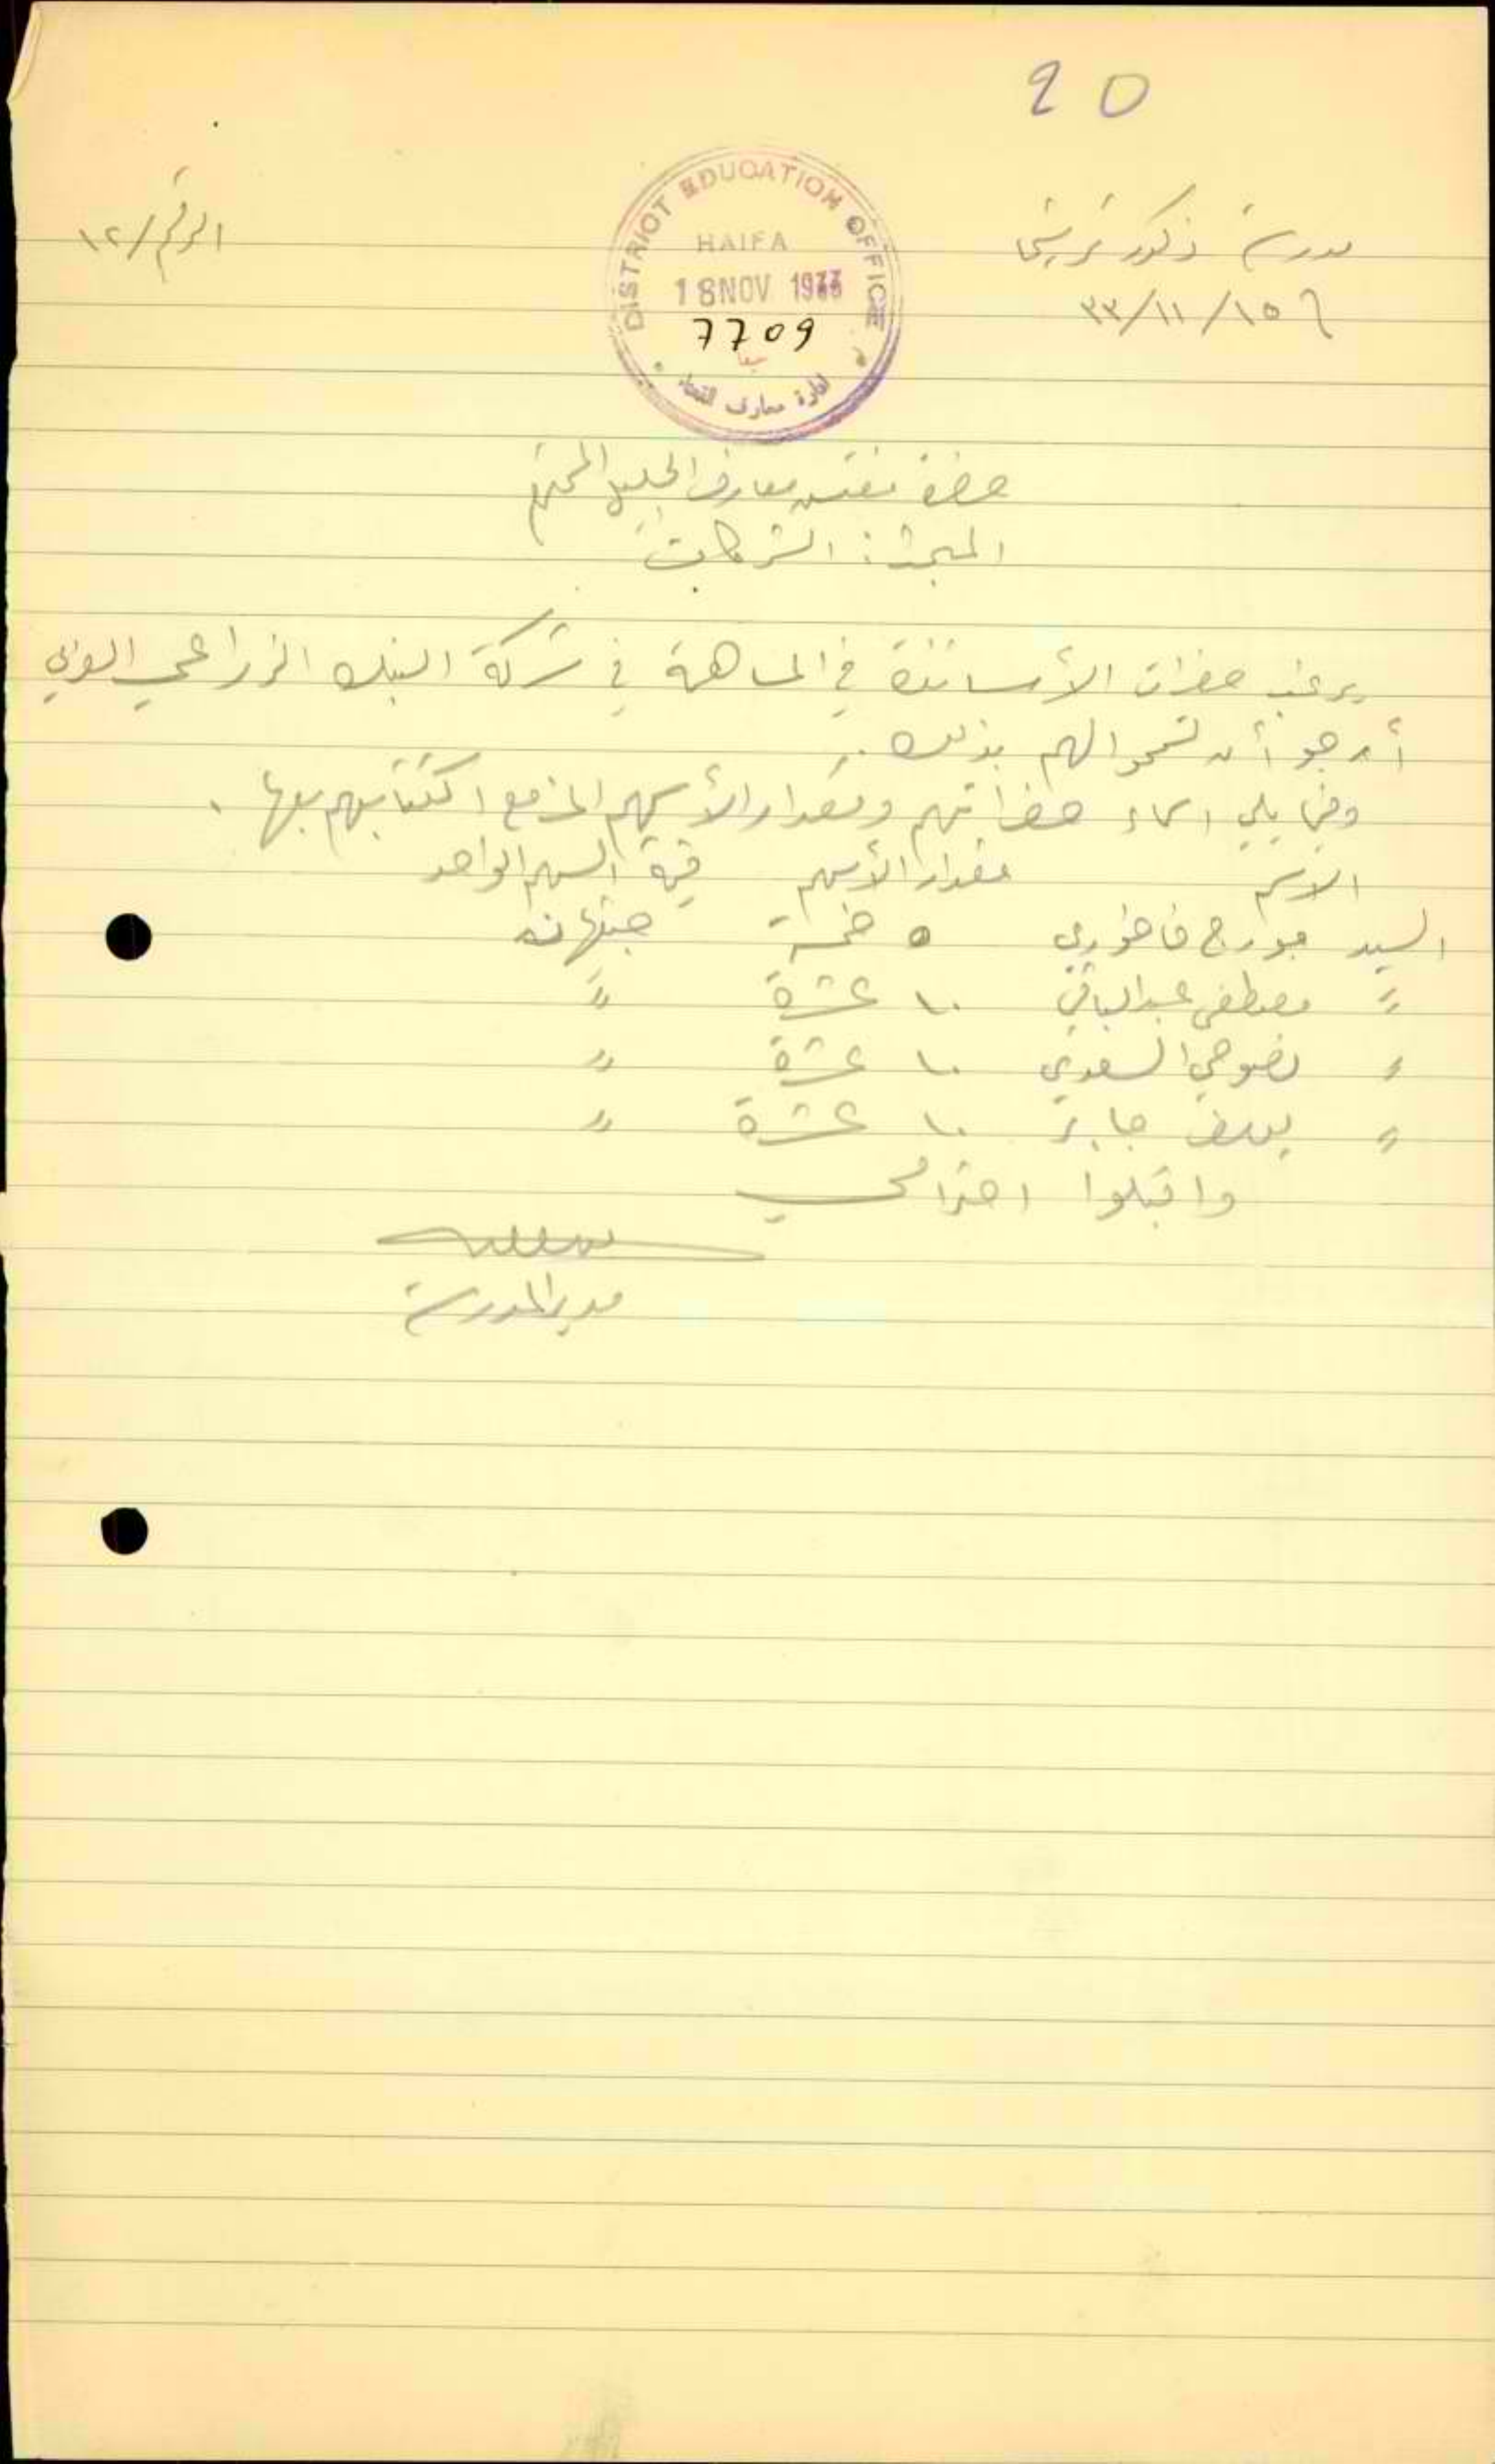 20
مدرسة ذكور ترشيحا
الرقم/١٢
١٥/١١/٣٣
DISTRICT EDUCATION OFFICE
HAIFA
18 NOV 1933
7709
حيفا
ادارة معارف القضاء
حضرة مفتش معارف الجليل المحترم
المبحث: الشركات
يرغب حضرات الأساتذة في المساهمة في شركة البنك الزراعي العربي
أرجو أن تسمحوا لهم بذلك.
وفيما يلي اسماء حضراتهم ومقدار الأسهم المزمع اكتتابهم بها.
الاسم مقدار الأسهم قيمة السهم الواحد
السيد جورج فاخوري ٥ خمسة جنيهان
" مصطفى عبد الباقي ١٠ عشرة "
" نصوحي السعدي ١٠ عشرة "
" يوسف جابر ١٠ عشرة "
واقبلوا احترامي
مدير المدرسة